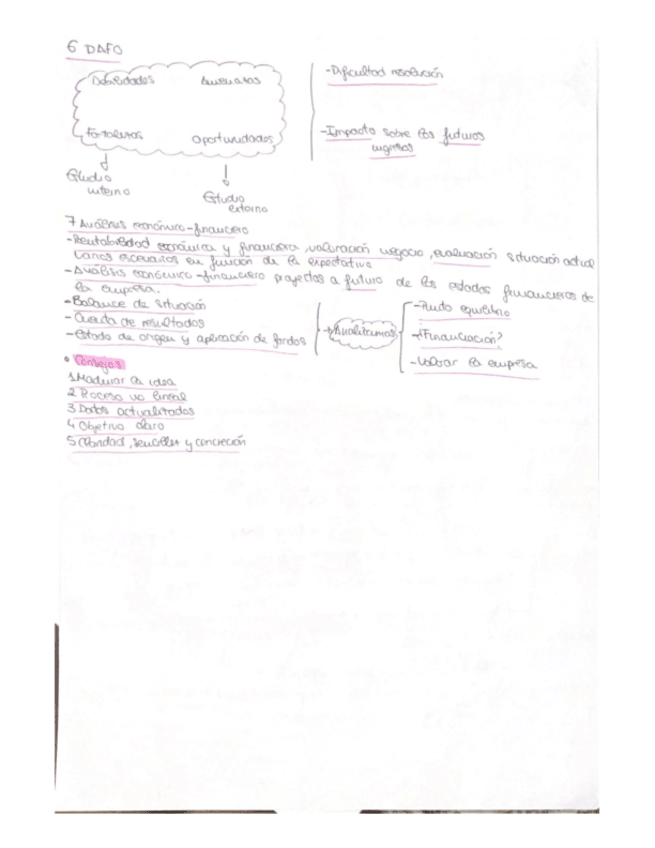 6 DAFO
Debilidades Amenazas
Fortalezas Oportunidades
Estudio interno
Estudio externo
-Dificultad resolución
-Impacto sobre los futuros
ingresos
7 Análisis económico-financiero
-Rentabilidad económica y financiera, valoración negocio, evaluación situación actual
varios escenarios en función de la expectativa
-Análisis económico-financiero proyectos a futuro de los estados financieros de
la empresa.
-Balance de situación
-Cuenta de resultados
-Estado de origen y aplicación de fondos
→Analizamos
-Punto equilibrio
-¿Financiación?
-Valorar la empresa
• Consejos
1 Madurar la idea
2 Proceso no lineal
3 Datos actualizados
4 Objetivo claro
5 Claridad, sencillez y concreción